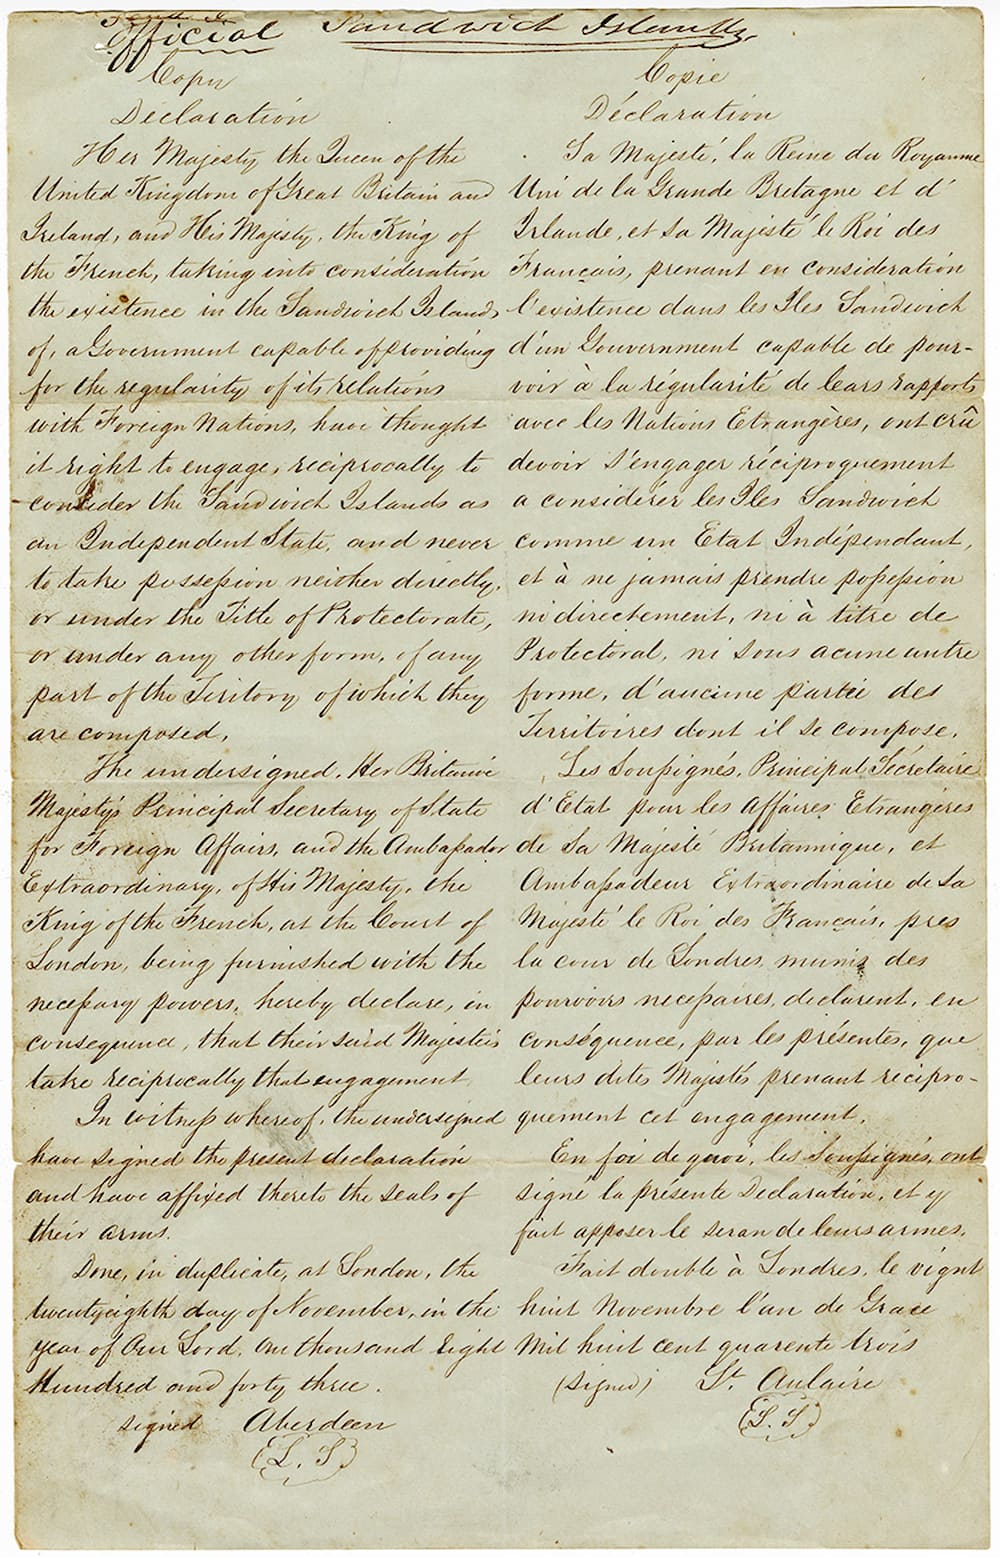 Official Sandwich Islands.
Copy
Declaration
Her Majesty the Queen of the
United Kingdom of Great Britain and
Ireland, and His Majesty, the King of
the French, taking into consideration
the existence in the Sandwich Islands
of, a Government capable of providing
for the regularity of its relations
with Foreign Nations, have thought
it right to engage, reciprocally to
consider the Sandwich Islands as
an Independent State, and never
to take possession neither directly,
or under the Title of Protectorate,
or under any other form, of any
part of the Teritory of which they
are composed,
The undersigned, Her Britanic
Majesty's Principal Secretary of State
for Foreign Affairs, and the Ambassador
Extraordinary, of His Majesty, the
King of the French, at the Court of
London, being furnished with the
necessary powers, hereby declare, in
consequence, that their said Majesties
take reciprocally that engagement
In witness whereof, the undersigned
have signed the present declaration
and have affixed thereto the seals of
their arms.
Done, in duplicate, at London, the
twenty eighth day of November, in the
year of Our Lord, One thousand Eight
Hundred and forty three.
signed Aberdeen
(L. S)
Copie
Déclaration
Sa Majesté, la Reine du Royaume
Uni de la Grande Bretagne et d'
Irlande, et Sa Majesté le Roi des
Français, prenant en consideration
l'existence dans les Iles Sandwich
d'un Gouvernment capable de pour-
voir à la régularité de leurs rapports
avec les Nations Etrangères, ont crû
devoir s'engager réciproquement
a considérer les Iles Sandwich
comme un Etat Indépendant,
et à ne jamais prendre possession
ni directement, ni à titre de
Protectorat, ni sous acune autre
forme, d'aucune partie des
Territoires dont il se compose.
Les Soussignés, Principal Sécrétaire
d'Etat pour les Affaires Etrangéres
de Sa Majesté Britannique, et
Ambassadeur Extraordinaire de Sa
Majesté le Roi des Français, pres
la cour de Londres, munis des
pouvoirs necessaires, declarent, en
conséquence, par les présentes, que
leurs dites Majestés prenant récipro-
quement cet engagement.
En foi de quoi, les Soussignés, ont
signé la présente Declaration, et y
fait apposer le seran de leurs armes.
Fait double à Londres, le vignt
huit Novembre l'an de Grace
Mil huit cent quarente trois
(signed) St. Aulaire
(L. S)